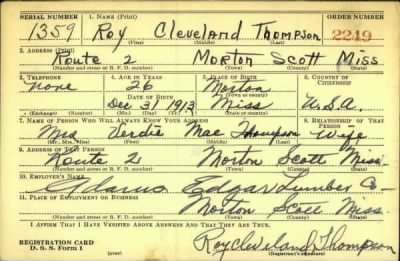 SERIAL NUMBER 1. NAME (Print) ORDER NUMBER
1359 Roy Cleveland Thompson 2249
(First) (Middle) (Last)
2. ADDRESS (Print)
Route 2 Morton Scott Miss
(Number and street or R. F. D. number) (Town) (County) (State)
3. TELEPHONE 4. AGE IN YEARS 5. PLACE OF BIRTH 6. COUNTRY OF CITIZENSHIP
None 26 Morton
DATE OF BIRTH (Town or county)
Dec 31 1913 Miss U.S.A.
(Exchange) (Number) (Mo.) (Day) (Yr.) (State or country)
7. NAME OF PERSON WHO WILL ALWAYS KNOW YOUR ADDRESS 8. RELATIONSHIP OF THAT PERSON
Mrs Verdie Mae Thompson Wife
(Mr., Mrs., Miss) (First) (Middle) (Last)
9. ADDRESS OF THAT PERSON
Route 2 Morton Scott Miss.
(Number and street or R. F. D. number) (Town) (County) (State)
10. EMPLOYER'S NAME
Adams Edgar Lumber Co
11. PLACE OF EMPLOYMENT OR BUSINESS
Morton Scott Miss.
(Number and street or R. F. D. number) (Town) (County) (State)
I AFFIRM THAT I HAVE VERIFIED ABOVE ANSWERS AND THAT THEY ARE TRUE.
REGISTRATION CARD
D. S. S. Form 1 (over) Roy Cleveland Thompson
(Registrant's signature)